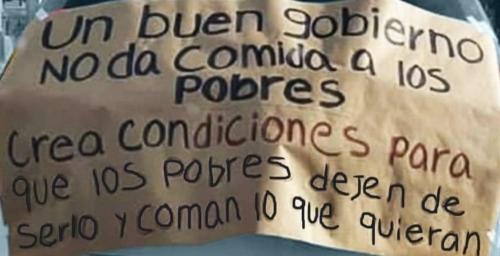 Un buen gobierno
NO da comida a los
pobres
Crea condiciones para
que los pobres dejen de
serlo y coman lo que quieran